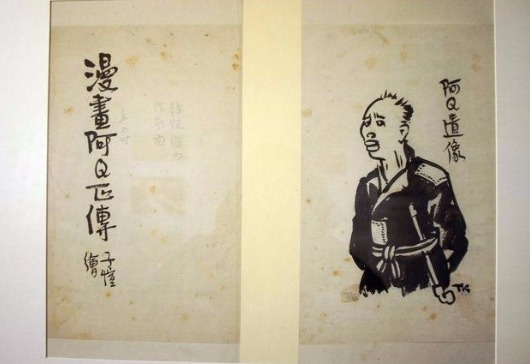 漫畫阿Q正傳
子愷
繪
阿Q遺像
TK